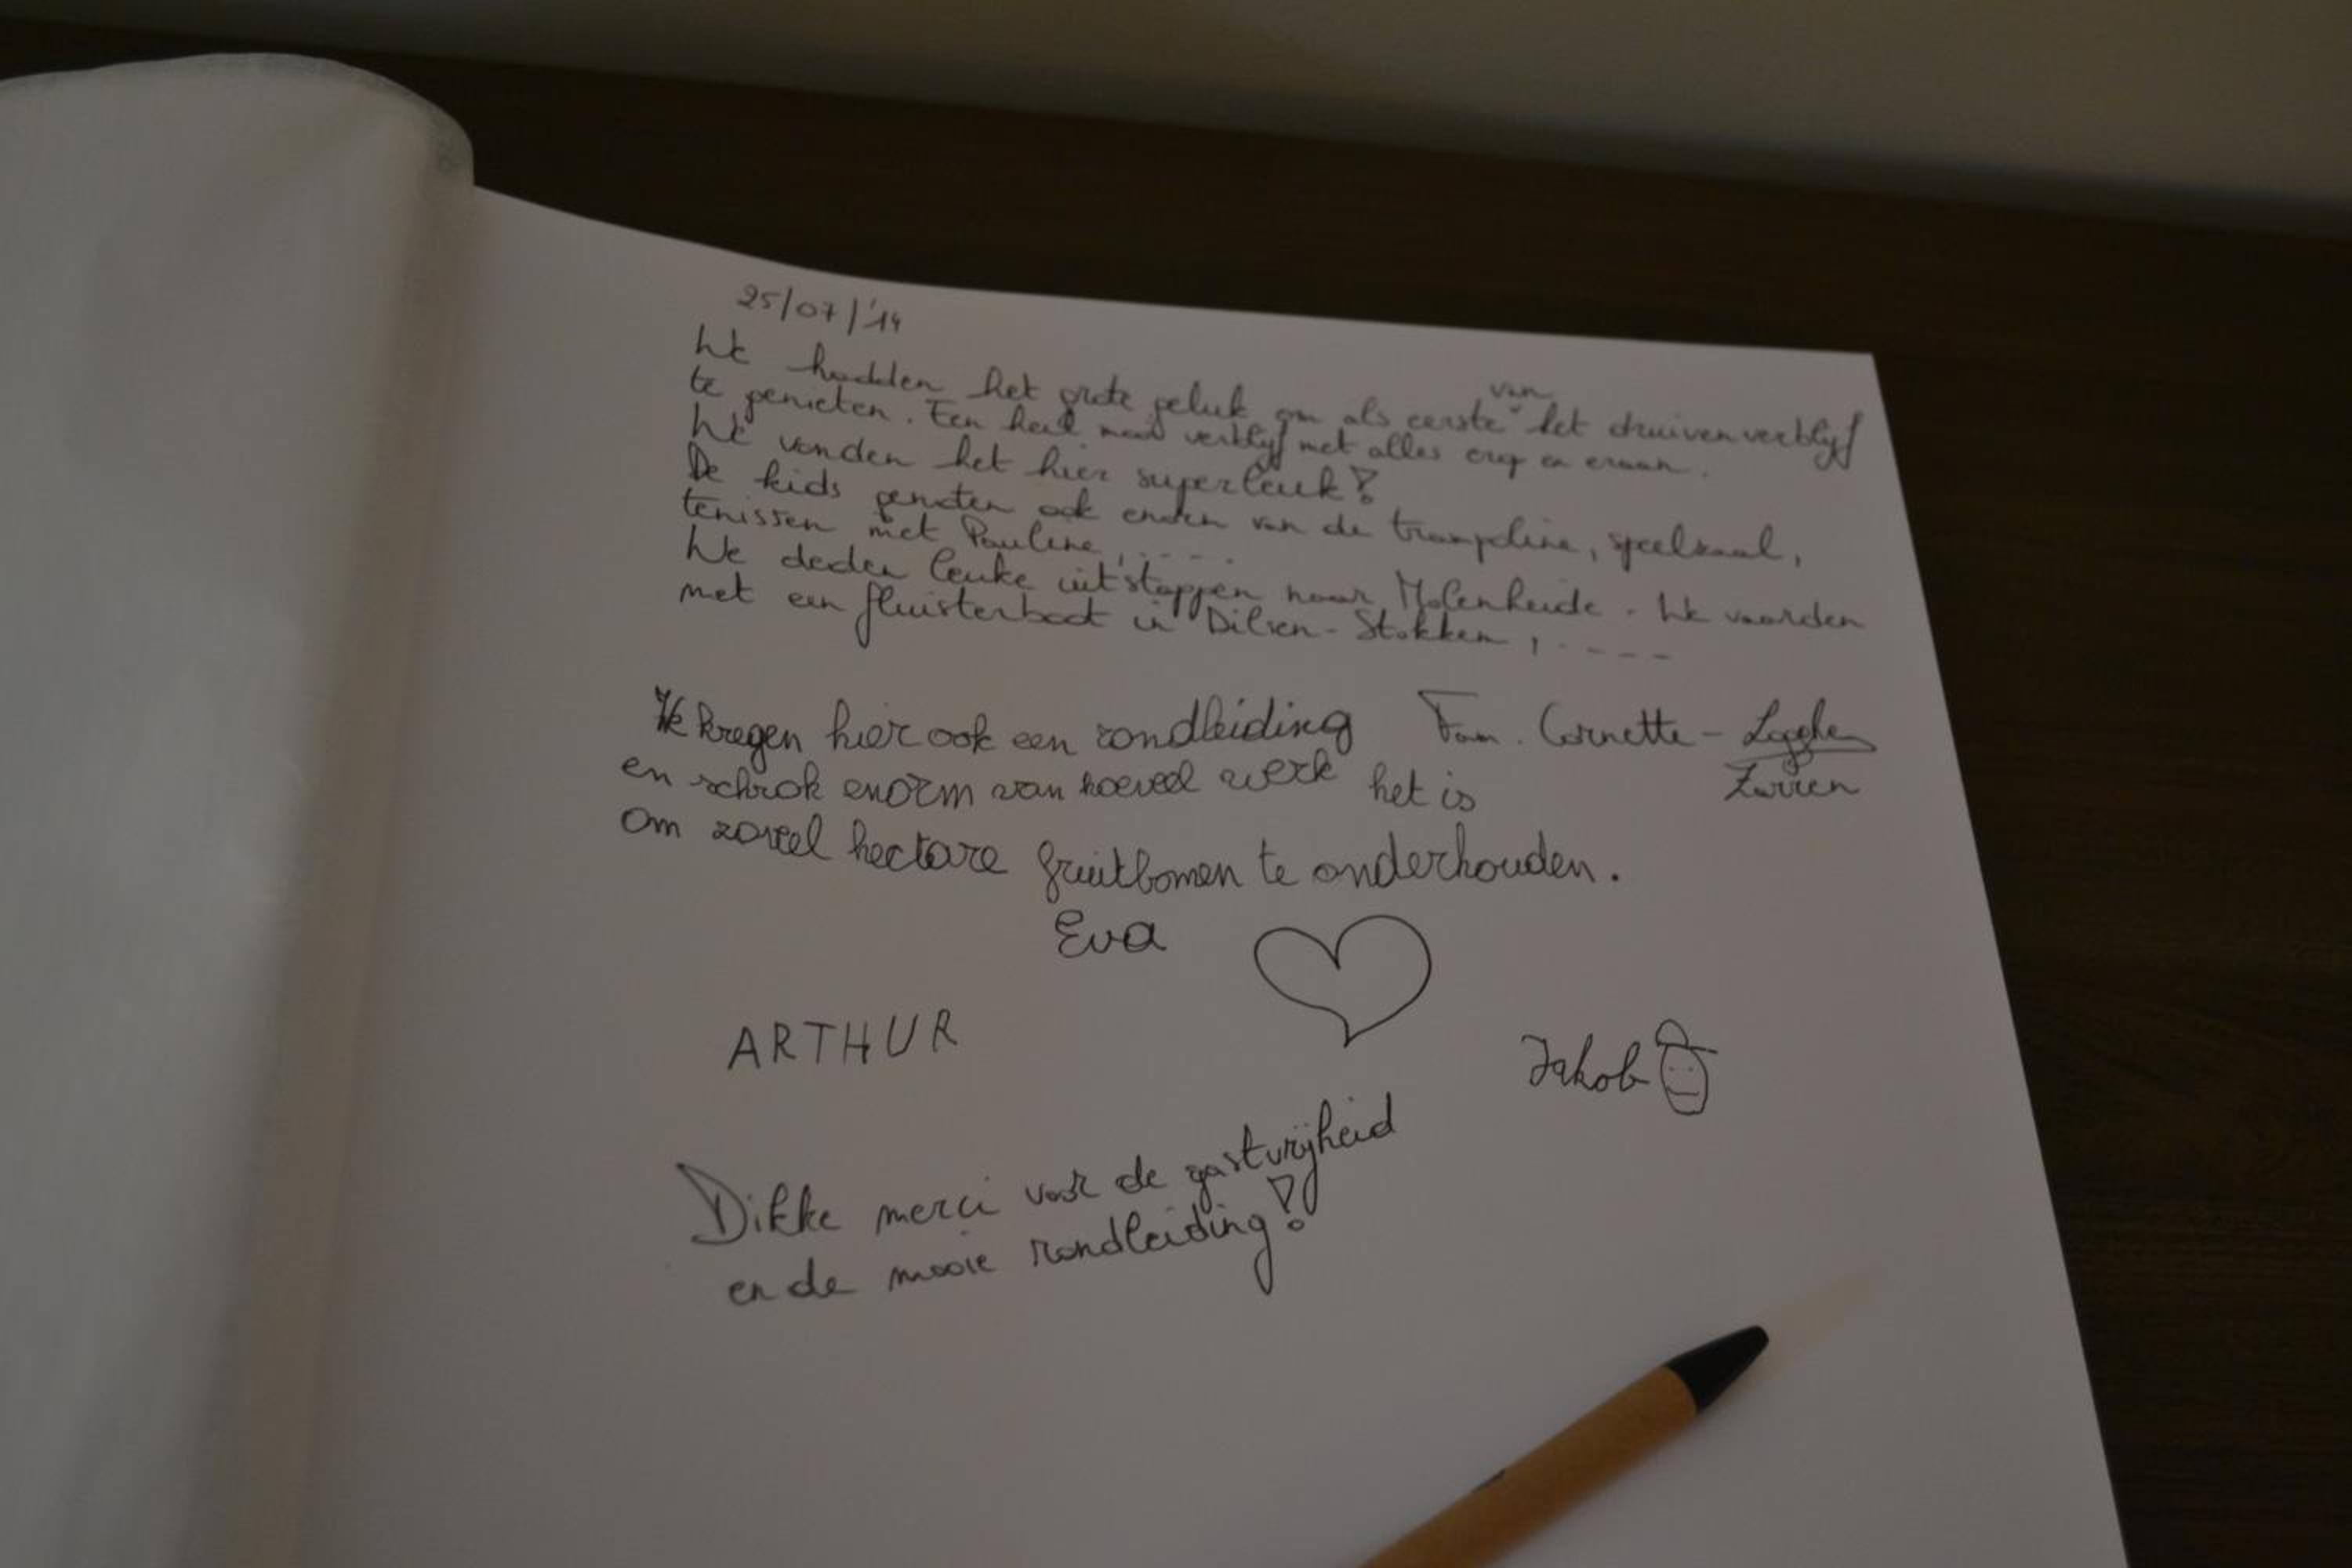 25/07/'14
We hadden het grote geluk om als eerste van het druivenverblijf
te genieten. Een heel mooi verblijf met alles erop en eraan.
We vonden het hier superleuk!
De kids genoten ook enorm van de trampoline, speelzaal,
tenissen met Pauline, ....
We deden leuke uitstappen naar Molenheide. We vaarden
met een fluisterboot in Dilsen-Stokkem, .----
We kregen hier ook een rondleiding
en schrok enorm van hoeveel werk het is
om zoveel hectare fruitbomen te onderhouden.
Fam. Cornette -
Zarren
Eva
ARTHUR
Jakob
Dikke merci voor de gastvrijheid
en de mooie rondleiding!